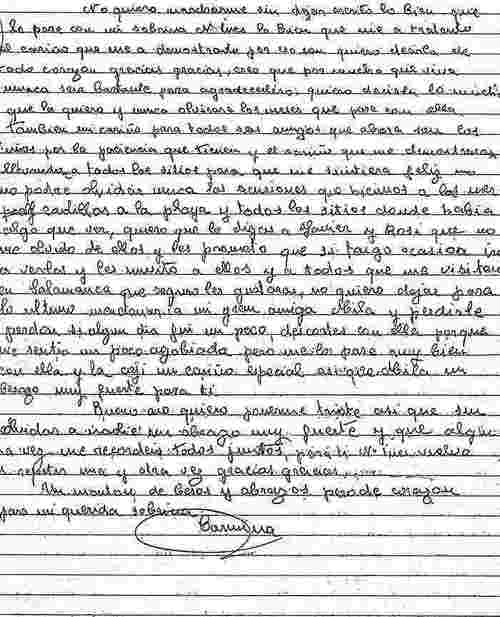 No quiero marcharme sin dejar escrito lo bien que
lo pase con mi sobrina Mª Ines lo bien que me a tratado
el cariño que me a demostrado por eso son quiero decirla de
todo corazon gracias gracias, creo que por mucho que viva
nunca sera bastante para agradecerselo, quiero decirla lo mucho
que la quiero y nunca olvidare los meses que pase con ella
tambien mi cariño para todos sus amigos que ahora son los
mios por la paciencia que tienen y el cariño que me demostraron
llevandome a todos los sitios para que me sintiera feliz no
no podre olvidar nunca las reuniones que hicimos a los
pescadillas a la playa y todos los sitios donde habia
algo que ver, quiero que le digas a Javier y Rosi que no
me olvido de ellos y les prometo que si tengo ocasion ire
a verlos y les invito a ellos y a todos que me visiten
en Salamanca que seguro les gustaras, no quiero dejar para
lo ultimo mandarla a mi gran amiga Obila y pedirle
perdon si algun dia fui un poco, descortes con ella porque
me sentia un poco agobiada pero me lo pase muy bien
con ella y la cogi un cariño especial asi que Obila un
besazo muy fuerte para ti
Bueno no quiero ponerme triste asi que sin
olvidar a nadie un abrazo muy fuerte y que algu
na vez me recordeis todos juntos, para ti Mª Ines vuelvo
a repetir una y otra vez gracias gracias,
Un monton de besos y abrazos de corazon
para mi querida sobrina
Carmina